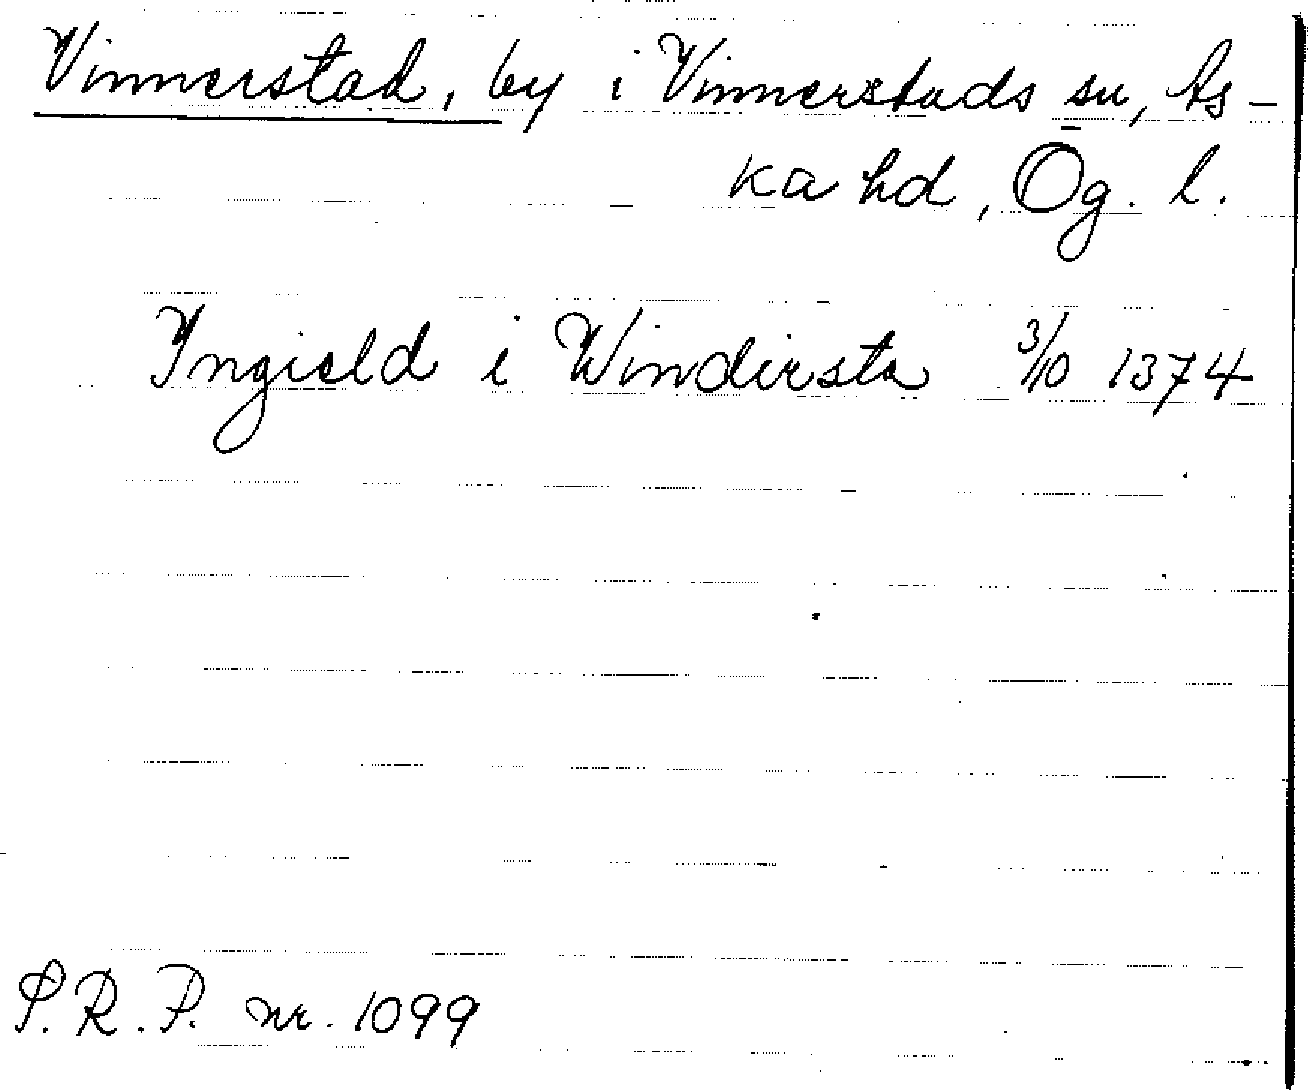 Vinnerstad, by i Vinnerstads sn, As-
ka hd, Ög. l.
Ingield i Windirsta 3/10 1374
P.R.P. nr. 1099